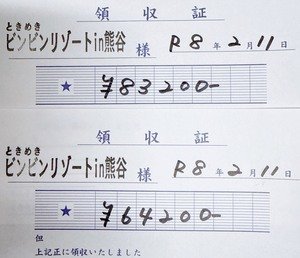 領収証
ときめき
ピンピンリゾートin熊谷 様 R8年2月11日
★ ¥83200-
領収証
ときめき
ピンピンリゾートin熊谷 様 R8年2月11日
★ ¥64200-
但
上記正に領収いたしました